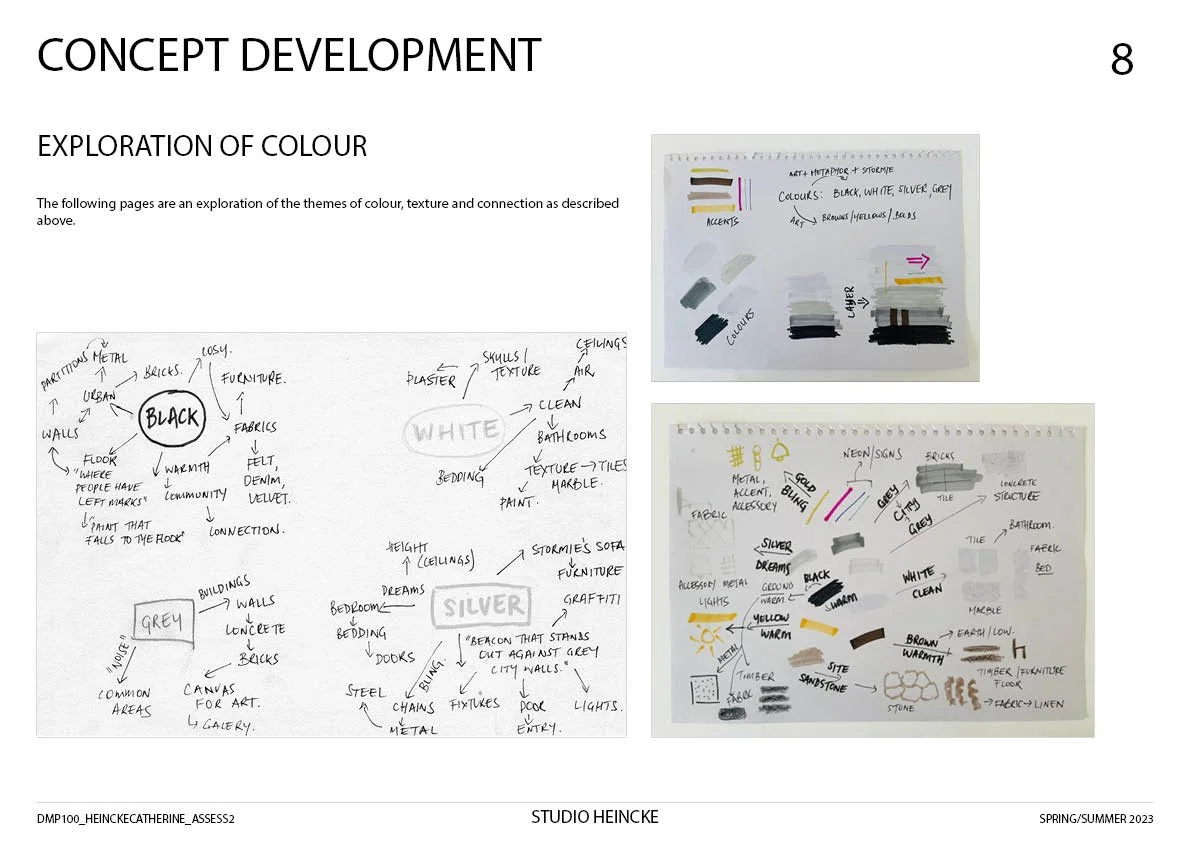 CONCEPT DEVELOPMENT
8
EXPLORATION OF COLOUR
The following pages are an exploration of the themes of colour, texture and connection as described
above.
PARTITIONS
METAL
COSY.
BRICKS.
URBAN
FURNITURE.
BLACK
WALLS
FABRICS
FLOOR
"WHERE
PEOPLE HAVE
LEFT MARKS"
"PAINT THAT
FALLS TO THE FLOOR"
WARMTH
COMMUNITY
CONNECTION.
FELT,
DENIM,
VELVET.
CEILINGS
SKULLS /
TEXTURE
PLASTER
AIR
WHITE
CLEAN
BATHROOMS
BEDDING
TEXTURE → TILES
MARBLE.
PAINT.
GREY
BUILDINGS
WALLS
CONCRETE
BRICKS
"NOISE"
COMMON
AREAS
CANVAS
FOR ART.
GALERY.
HEIGHT
(CEILINGS)
STORMIE'S SOFA
FURNITURE
DREAMS
BEDROOM
SILVER
GRAFFITI
BEDDING
DOORS
"BEACON THAT STANDS
OUT AGAINST GREY
CITY WALLS."
BLING.
STEEL
CHAINS
METAL
FIXTURES
DOOR
ENTRY.
LIGHTS.
ART + METAPHOR + STORMIE
COLOURS: BLACK, WHITE, SILVER, GREY
ART
BROWNS/YELLOWS/BOLDS
ACCENTS
COLOURS
LAYER
NEON/SIGNS
BRICKS
METAL,
ACCENT,
ACCESSORY
GOLD
BLING
TILE
CONCRETE
STRUCTURE
GREY
CITY
GREY
FABRIC
BATHROOM.
TILE
FABRIC
BED
SILVER
DREAMS
ACCESSORY METAL
LIGHTS
GROUND
WARM
BLACK
WARM
WHITE
CLEAN
MARBLE
YELLOW
WARM
BROWN
WARMTH
EARTH/LOW.
METAL
TIMBER
FABRIC
SITE
SANDSTONE
STONE
TIMBER/FURNITURE
FLOOR
FABRIC → LINEN
DMP100_HEINCKECATHERINE_ASSESS2
STUDIO HEINCKE
SPRING/SUMMER 2023